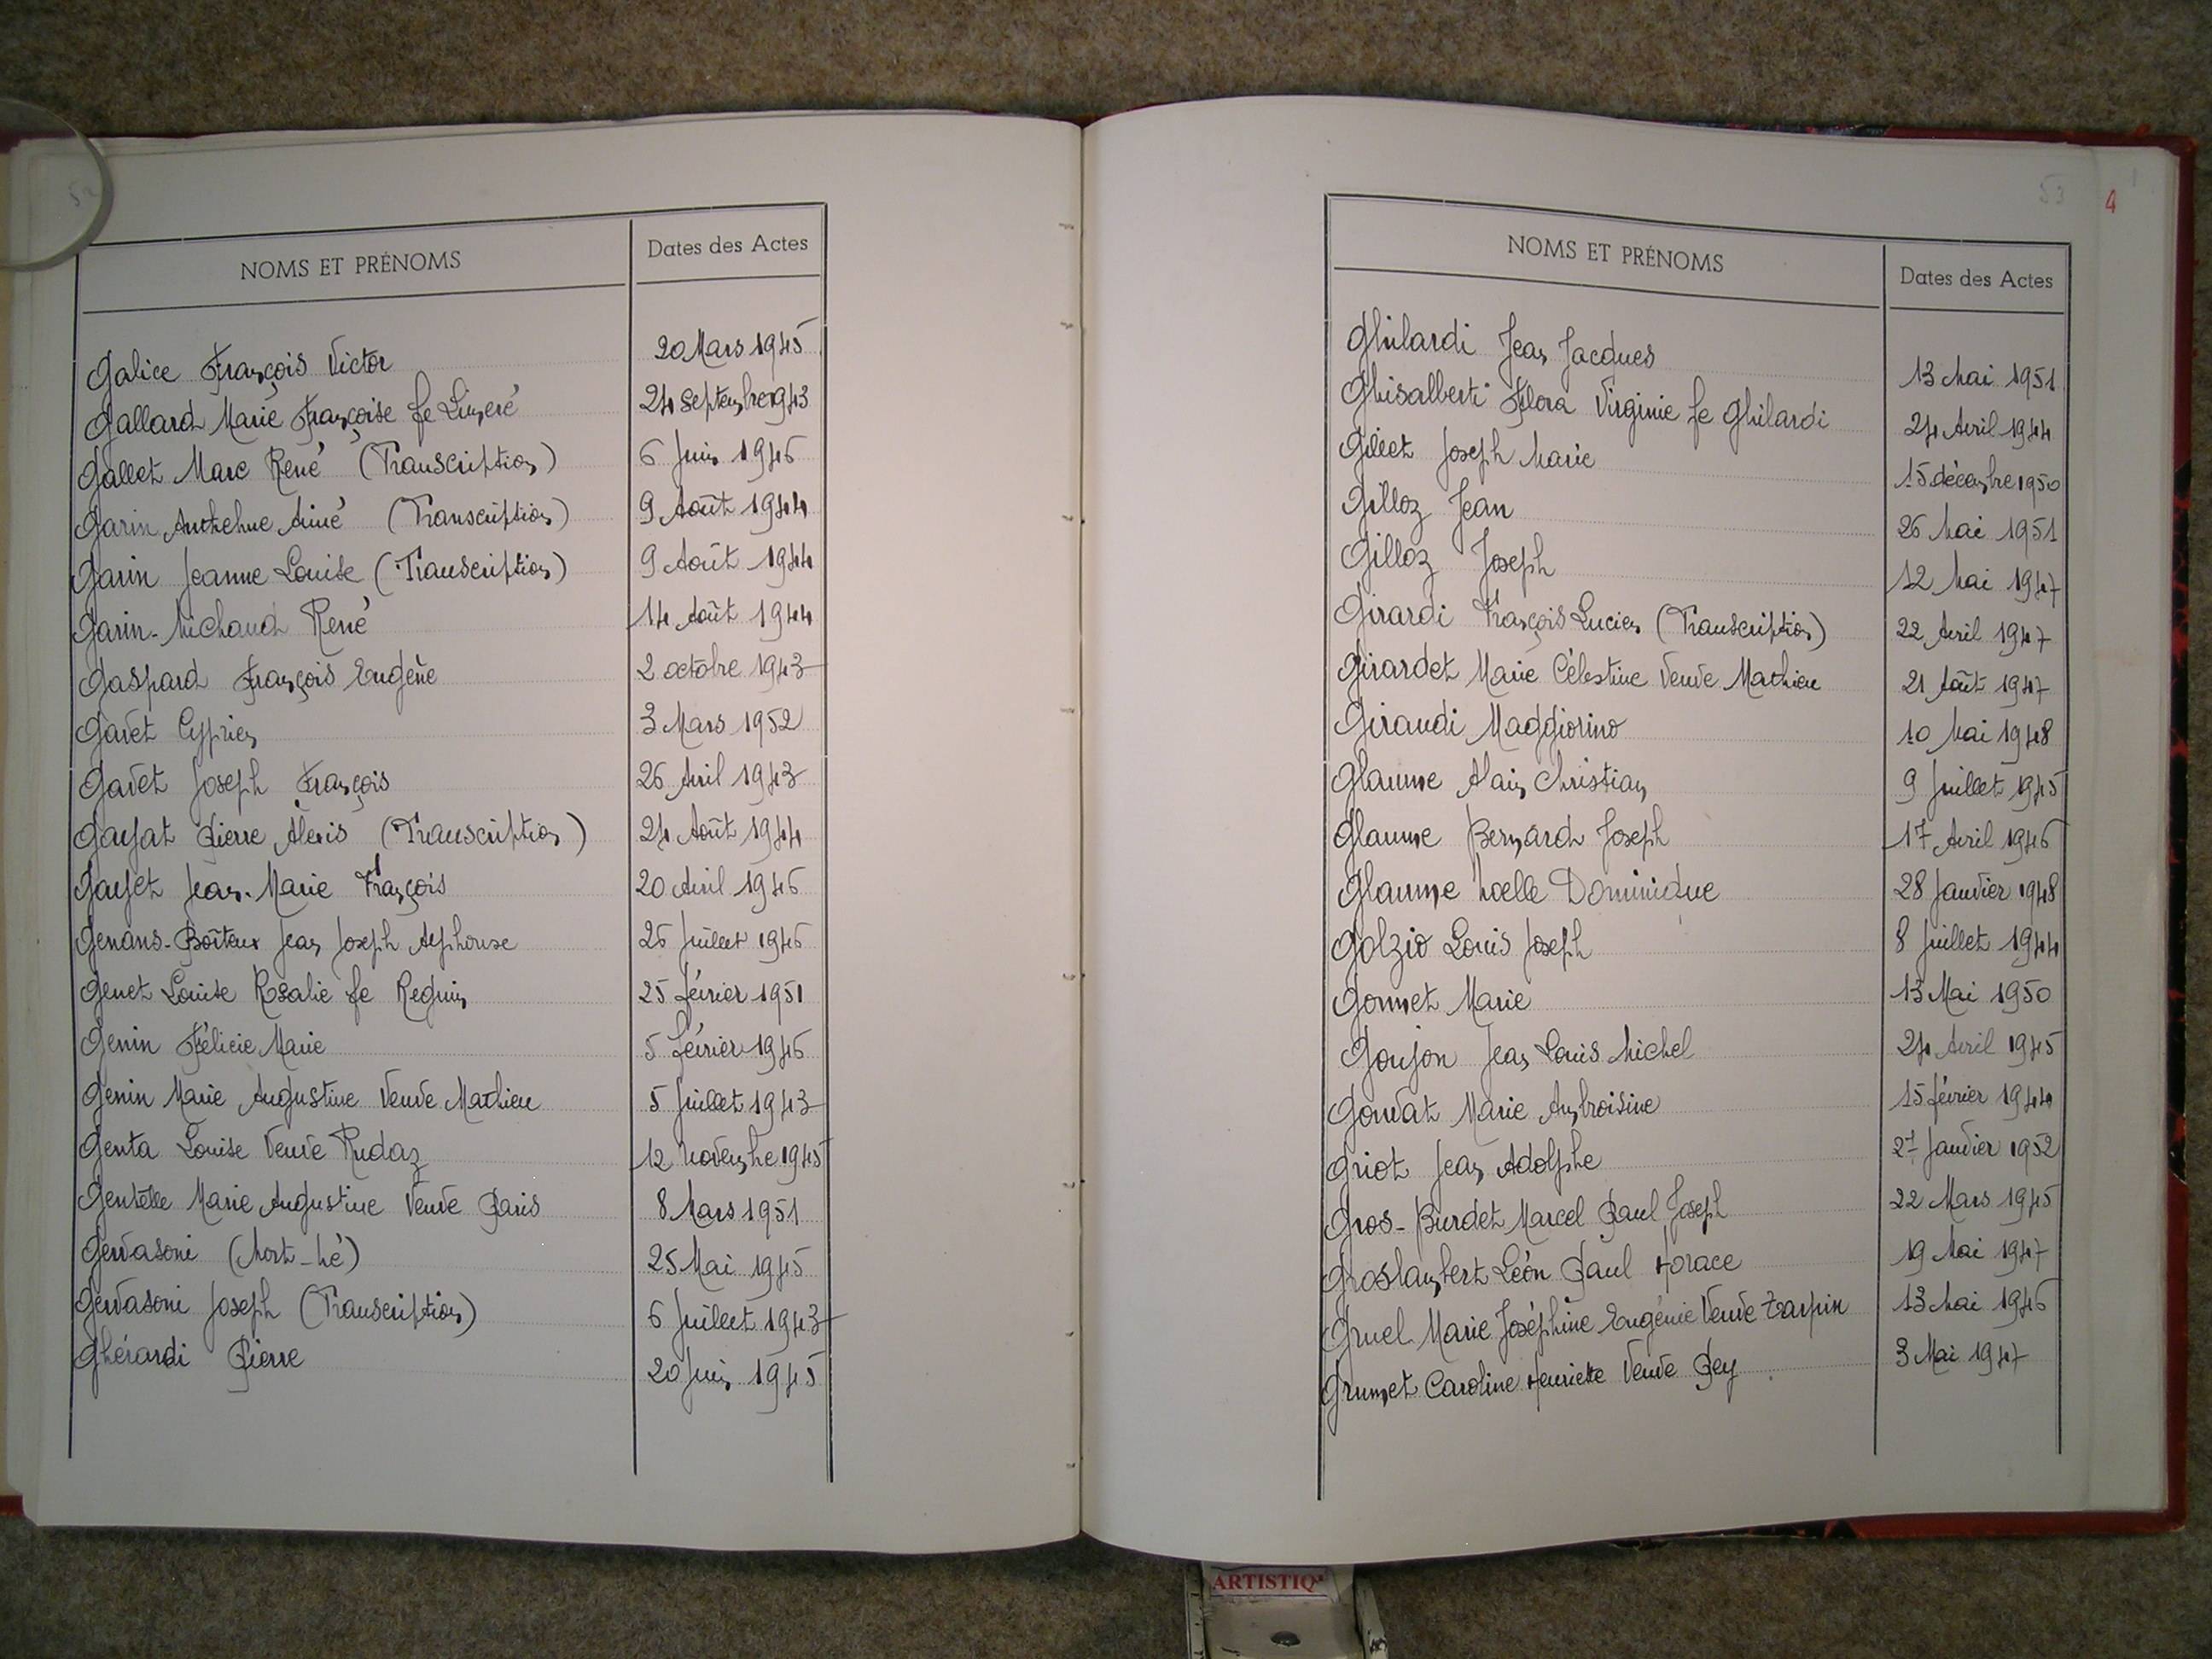 52
NOMS ET PRÉNOMS Dates des Actes
Galice François Victor 20 Mars 1945
Gallard Marie Françoise fe Limeré 24 septembre 1943
Gallet Marc René (Transcription) 6 Juin 1946
Garin Anthelme Aimé (Transcription) 9 Août 1944
Garin Jeanne Louise (Transcription) 9 Août 1944
Garin-Michaud René 14 Août 1944
Gaspard François Eugène 2 octobre 1943
Gavet Cyprien 3 Mars 1952
Gavet Joseph François 26 Avril 1943
Gayat Pierre Alexis (Transcription) 24 Août 1944
Gayet Jean-Marie François 20 Avril 1946
Genans-Boiteux Jean Joseph Alphonse 26 Juillet 1946
Genet Louise Rosalie fe Requin 25 février 1951
Genin Félicie Marie 5 février 1946
Genin Marie Augustine Veuve Mathieu 5 Juillet 1943
Genta Louise Veuve Rudaz 12 Novembre 1945
Gentelle Marie Augustine Veuve Paris 8 Mars 1951
Gervasoni (Mort-né) 25 Mai 1945
Gervasoni Joseph (Transcription) 6 Juillet 1943
Ghérardi Pierre 20 Juin 1945
53 4
NOMS ET PRÉNOMS Dates des Actes
Ghilardi Jean Jacques 13 Mai 1951
Ghisalberti Flora Virginie fe Ghilardi 24 Avril 1944
Gillet Joseph Marie 15 décembre 1950
Gilloz Jean 26 Mai 1951
Gilloz Joseph 12 Mai 1947
Girardi François Lucien (Transcription) 22 Avril 1947
Girardet Marie Célestine Veuve Mathieu 21 Août 1947
Giraudi Maggiorino 10 Mai 1948
Glaume Alain Christian 9 Juillet 1945
Glaume Bernard Joseph 17 Avril 1946
Glaume Noelle Dominique 28 Janvier 1948
Golzio Louis Joseph 8 Juillet 1944
Gonnet Marie 13 Mai 1950
Goujon Jean Louis Michel 24 Avril 1945
Gouvat Marie Ambroisine 15 février 1944
Griot Jean Adolphe 27 Janvier 1952
Gros-Burdet Marcel Paul Joseph 22 Mars 1945
Groslambert Léon Paul Horace 19 Mai 1947
Gruel Marie Joséphine Eugénie Veuve Trarpin 13 Mai 1946
Grumet Caroline Henriette Veuve Pey 3 Mai 1947
ARTISTIQ